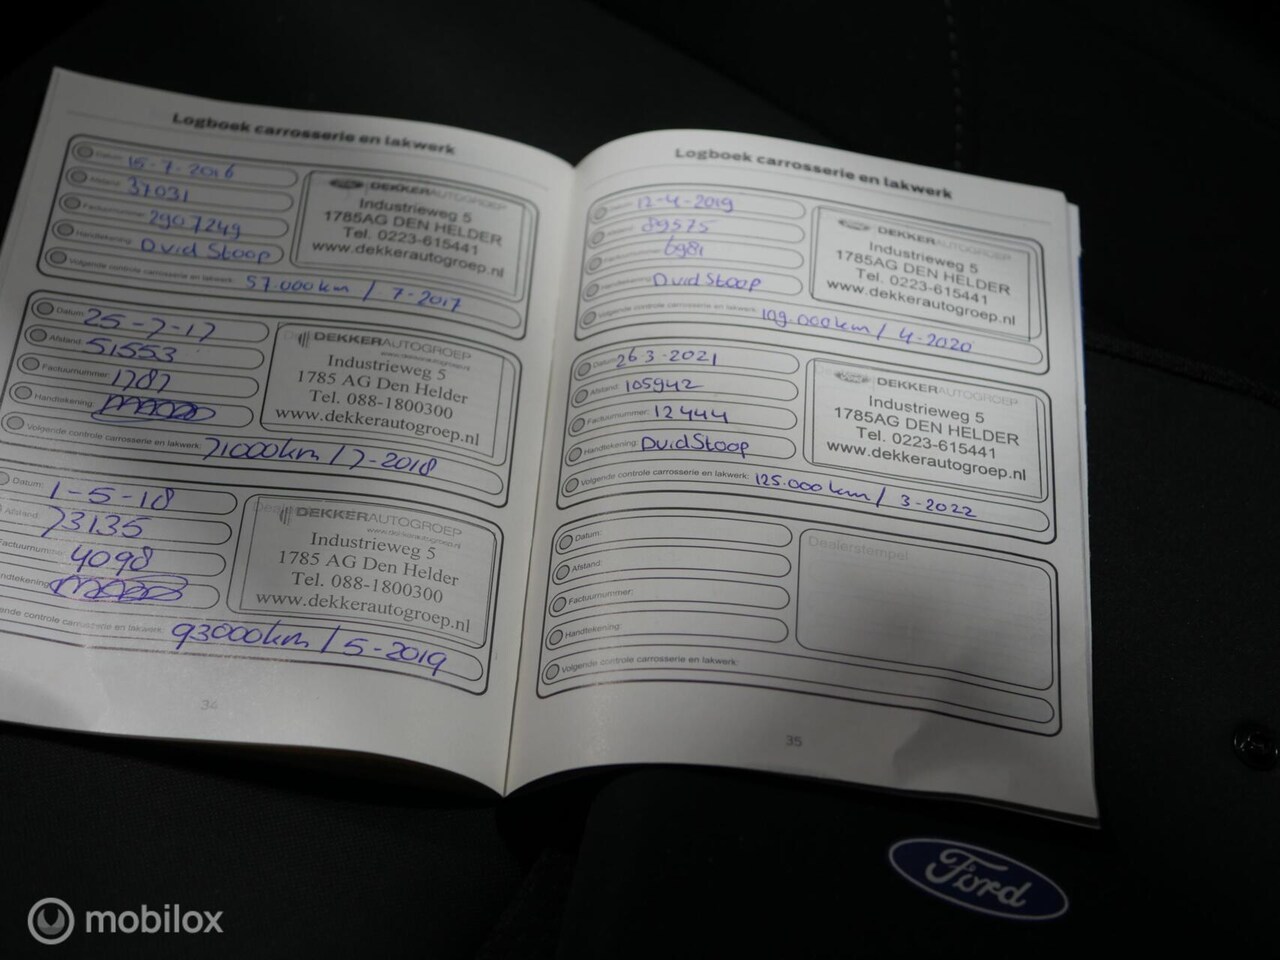 Logboek carrosserie en lakwerk
Datum: 15-7-2016
Afstand: 37031
Factuurnummer: 2907249
Handtekening: Dvid Stoop
Volgende controle carrosserie en lakwerk: 57.000km / 7-2017
DEKKERAUTOGROEP
Industrieweg 5
1785AG DEN HELDER
Tel. 0223-615441
www.dekkerautogroep.nl
Datum: 25-7-17
Afstand: 51553
Factuurnummer: 1787
Handtekening:
Volgende controle carrosserie en lakwerk: 71000km / 7-2018
DEKKERAUTOGROEP
www.dekkerautogroep.nl
Industrieweg 5
1785 AG Den Helder
Tel. 088-1800300
www.dekkerautogroep.nl
Datum: 1-5-18
Afstand: 73135
Factuurnummer: 4098
Handtekening:
Volgende controle carrosserie en lakwerk: 93000km / 5-2019
DEKKERAUTOGROEP
www.dekkerautogroep.nl
Industrieweg 5
1785 AG Den Helder
Tel. 088-1800300
www.dekkerautogroep.nl
34
Logboek carrosserie en lakwerk
Datum: 12-4-2019
Afstand: 89575
Factuurnummer: 6981
Handtekening: Dvid Stoop
Volgende controle carrosserie en lakwerk: 109.000km / 4-2020
DEKKERAUTOGROEP
Industrieweg 5
1785AG DEN HELDER
Tel. 0223-615441
www.dekkerautogroep.nl
Datum: 26 3-2021
Afstand: 105942
Factuurnummer: 12444
Handtekening: Dvid Stoop
Volgende controle carrosserie en lakwerk: 125.000km / 3-2022
DEKKERAUTOGROEP
Industrieweg 5
1785AG DEN HELDER
Tel. 0223-615441
www.dekkerautogroep.nl
Datum:
Afstand:
Factuurnummer:
Handtekening:
Volgende controle carrosserie en lakwerk:
Dealerstempel
35
Ford
mobilox